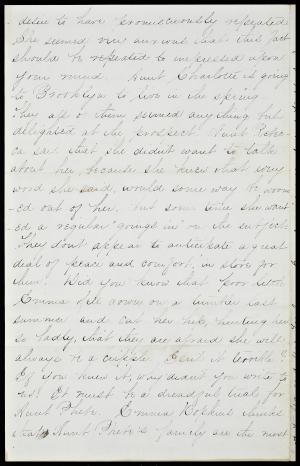 desire to have promiscuously repeated
She seemed very anxious that this fact
should be repeated to impressed upon
your mind. Aunt Charlotte is going
to Brooklyn to live in the spring.
They all of them seemed anything but
delighted at the prospect. Aunt Rebec
ca said that she didn't want to talk
about her, because she knew what every
word she said, would some way be worm
-ed out of her, but some time she want
-ed a regular "goings in" on the subject.
They don't appear to anticipate a great
deal of peace and comfort, in store for
them. Did you know that poor little
Emma fell down on a tumbler last
summer and cut her hip, hurting her
so badly, that they are afraid she will
always be a cripple. Isn't it terrible?
If you knew it, why didn't you write to
us? It must be a dreadful trial, for
Aunt Phebe. Emma Hoskins thinks
that Aunt Phebe's family are the most